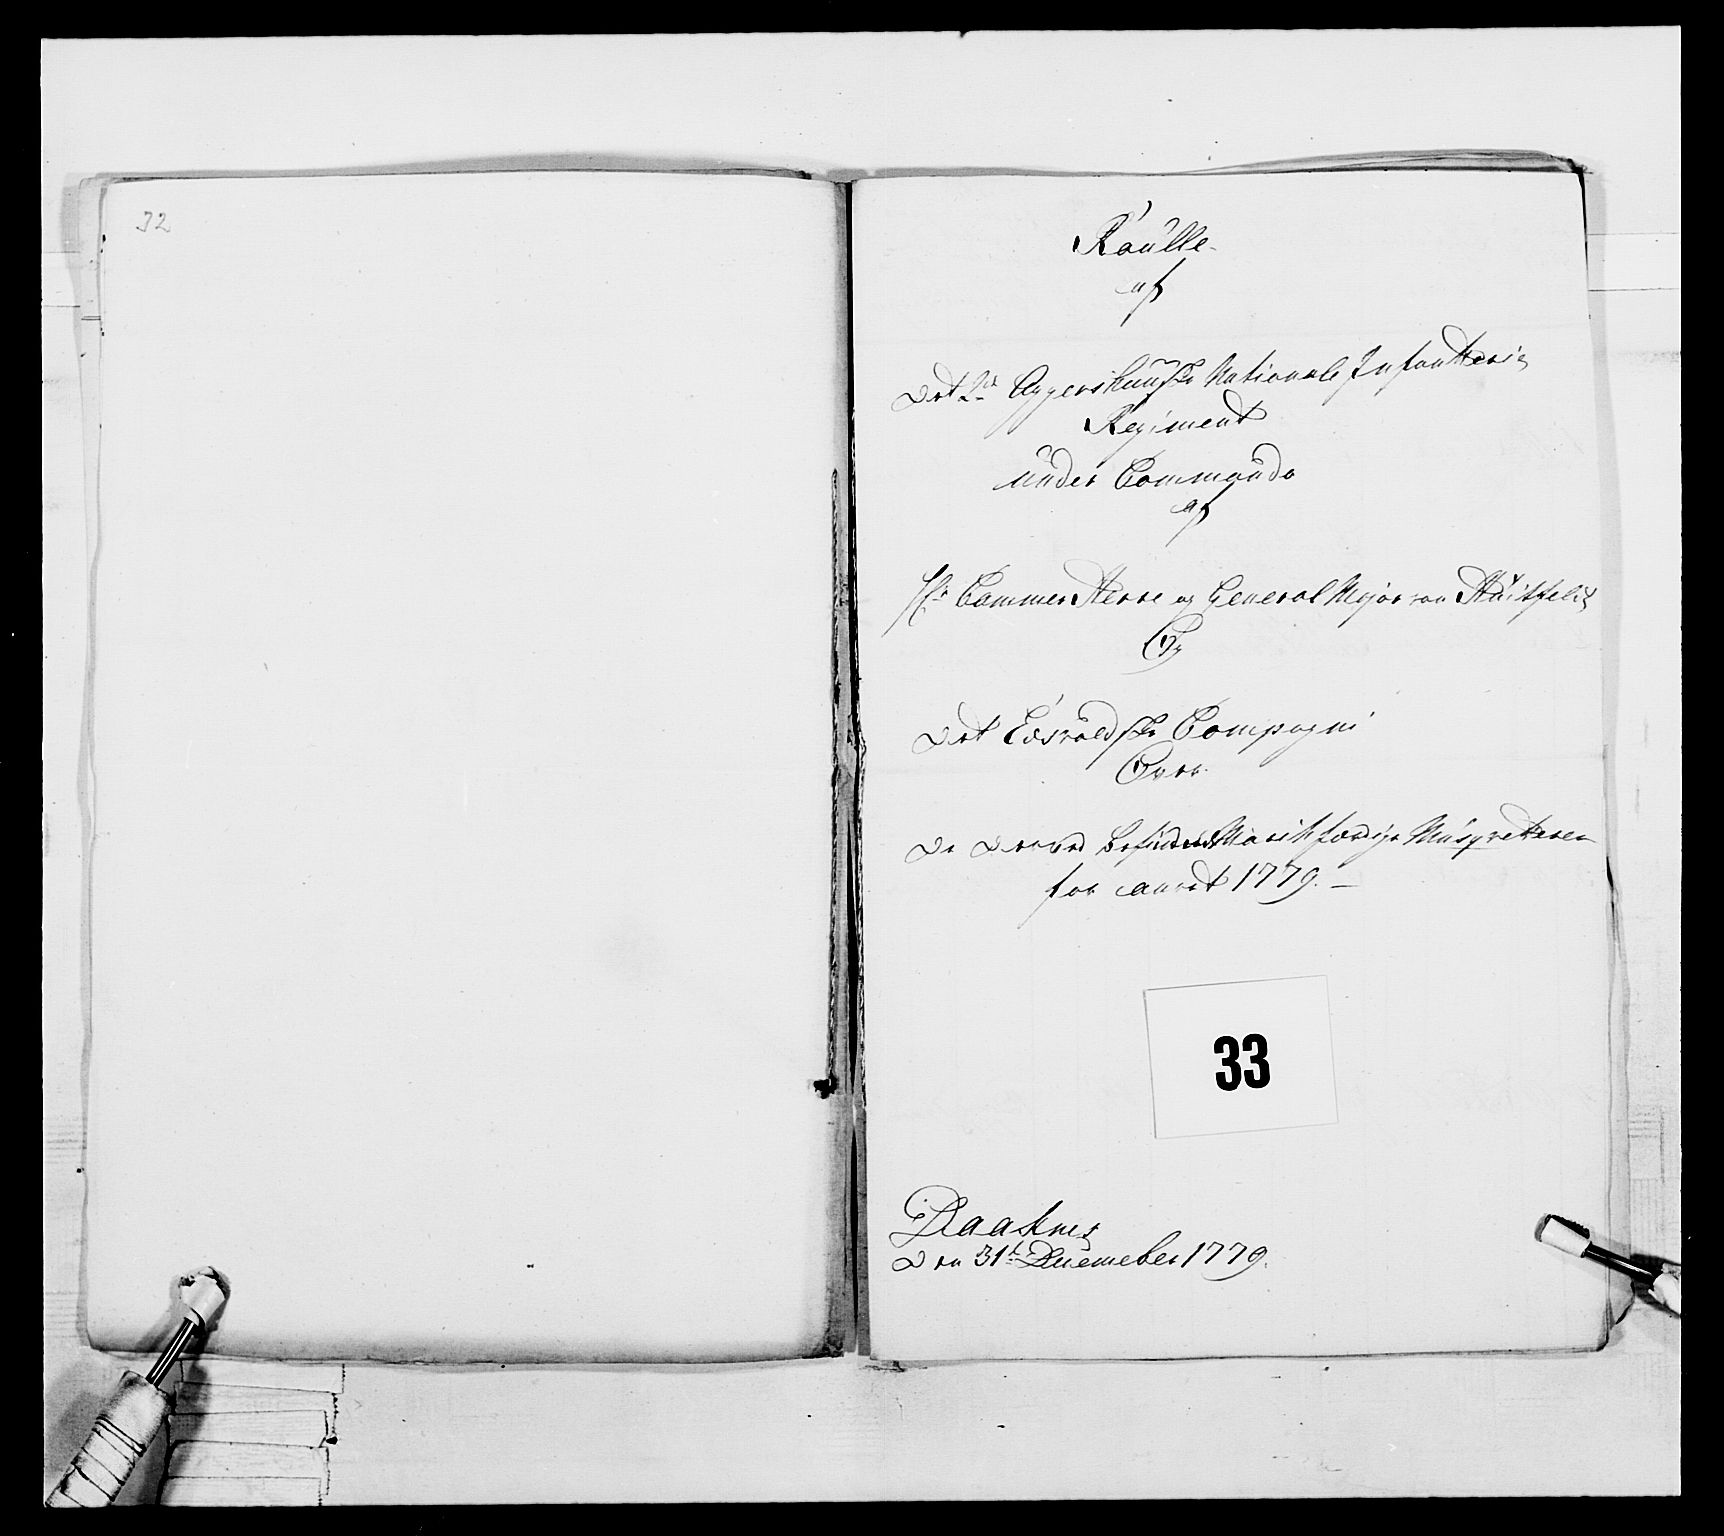 32
Roülle
af
Det 2det Aggershuusske Nationale Infanterie
Regiment
ünder Commando
af
Hr Cammer Herre og General Major von Hüitfeldt
Og
Det Edsvoldske Compagni
Over
De derved befindende March færdige Musqvetterer
for aaret 1779. —
33
Raaknes
den 31te Decemeber 1779.